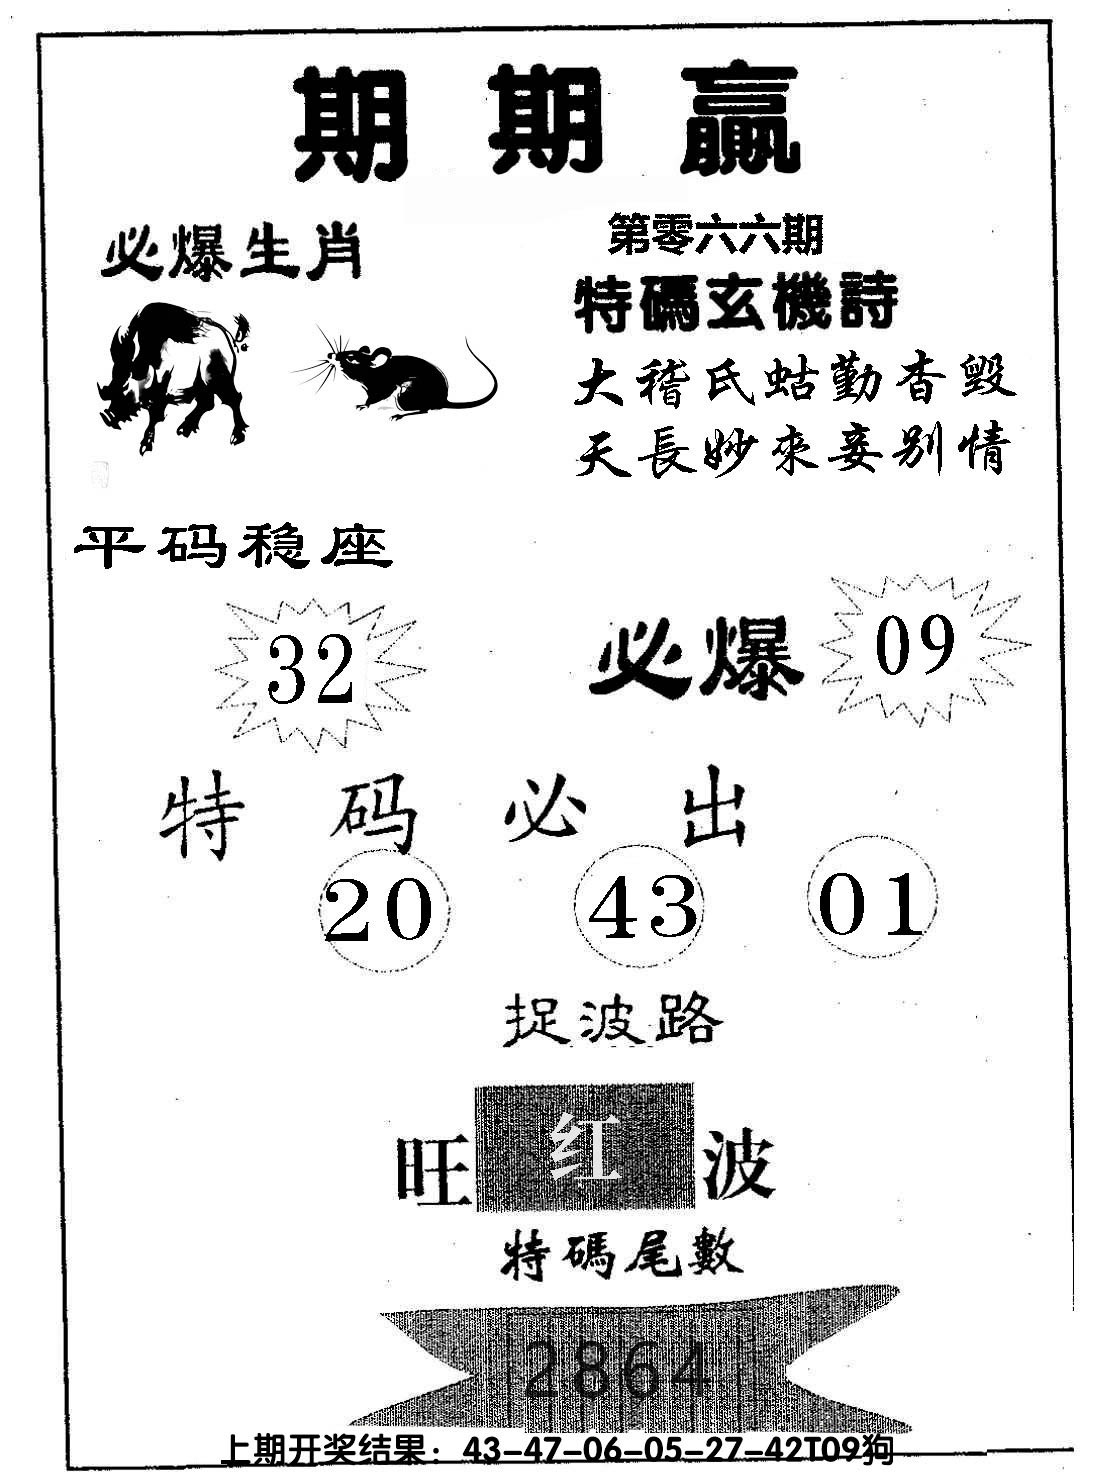 期期贏
必爆生肖
第零六六期
特碼玄機詩
大稽氏蛄勤杳毀
天長妙來妾别情
平码稳座
32
必爆 09
特码必出
20 43 01
捉波路
旺 红 波
特碼尾數
2864
上期开奖结果：43-47-06-05-27-42T09狗